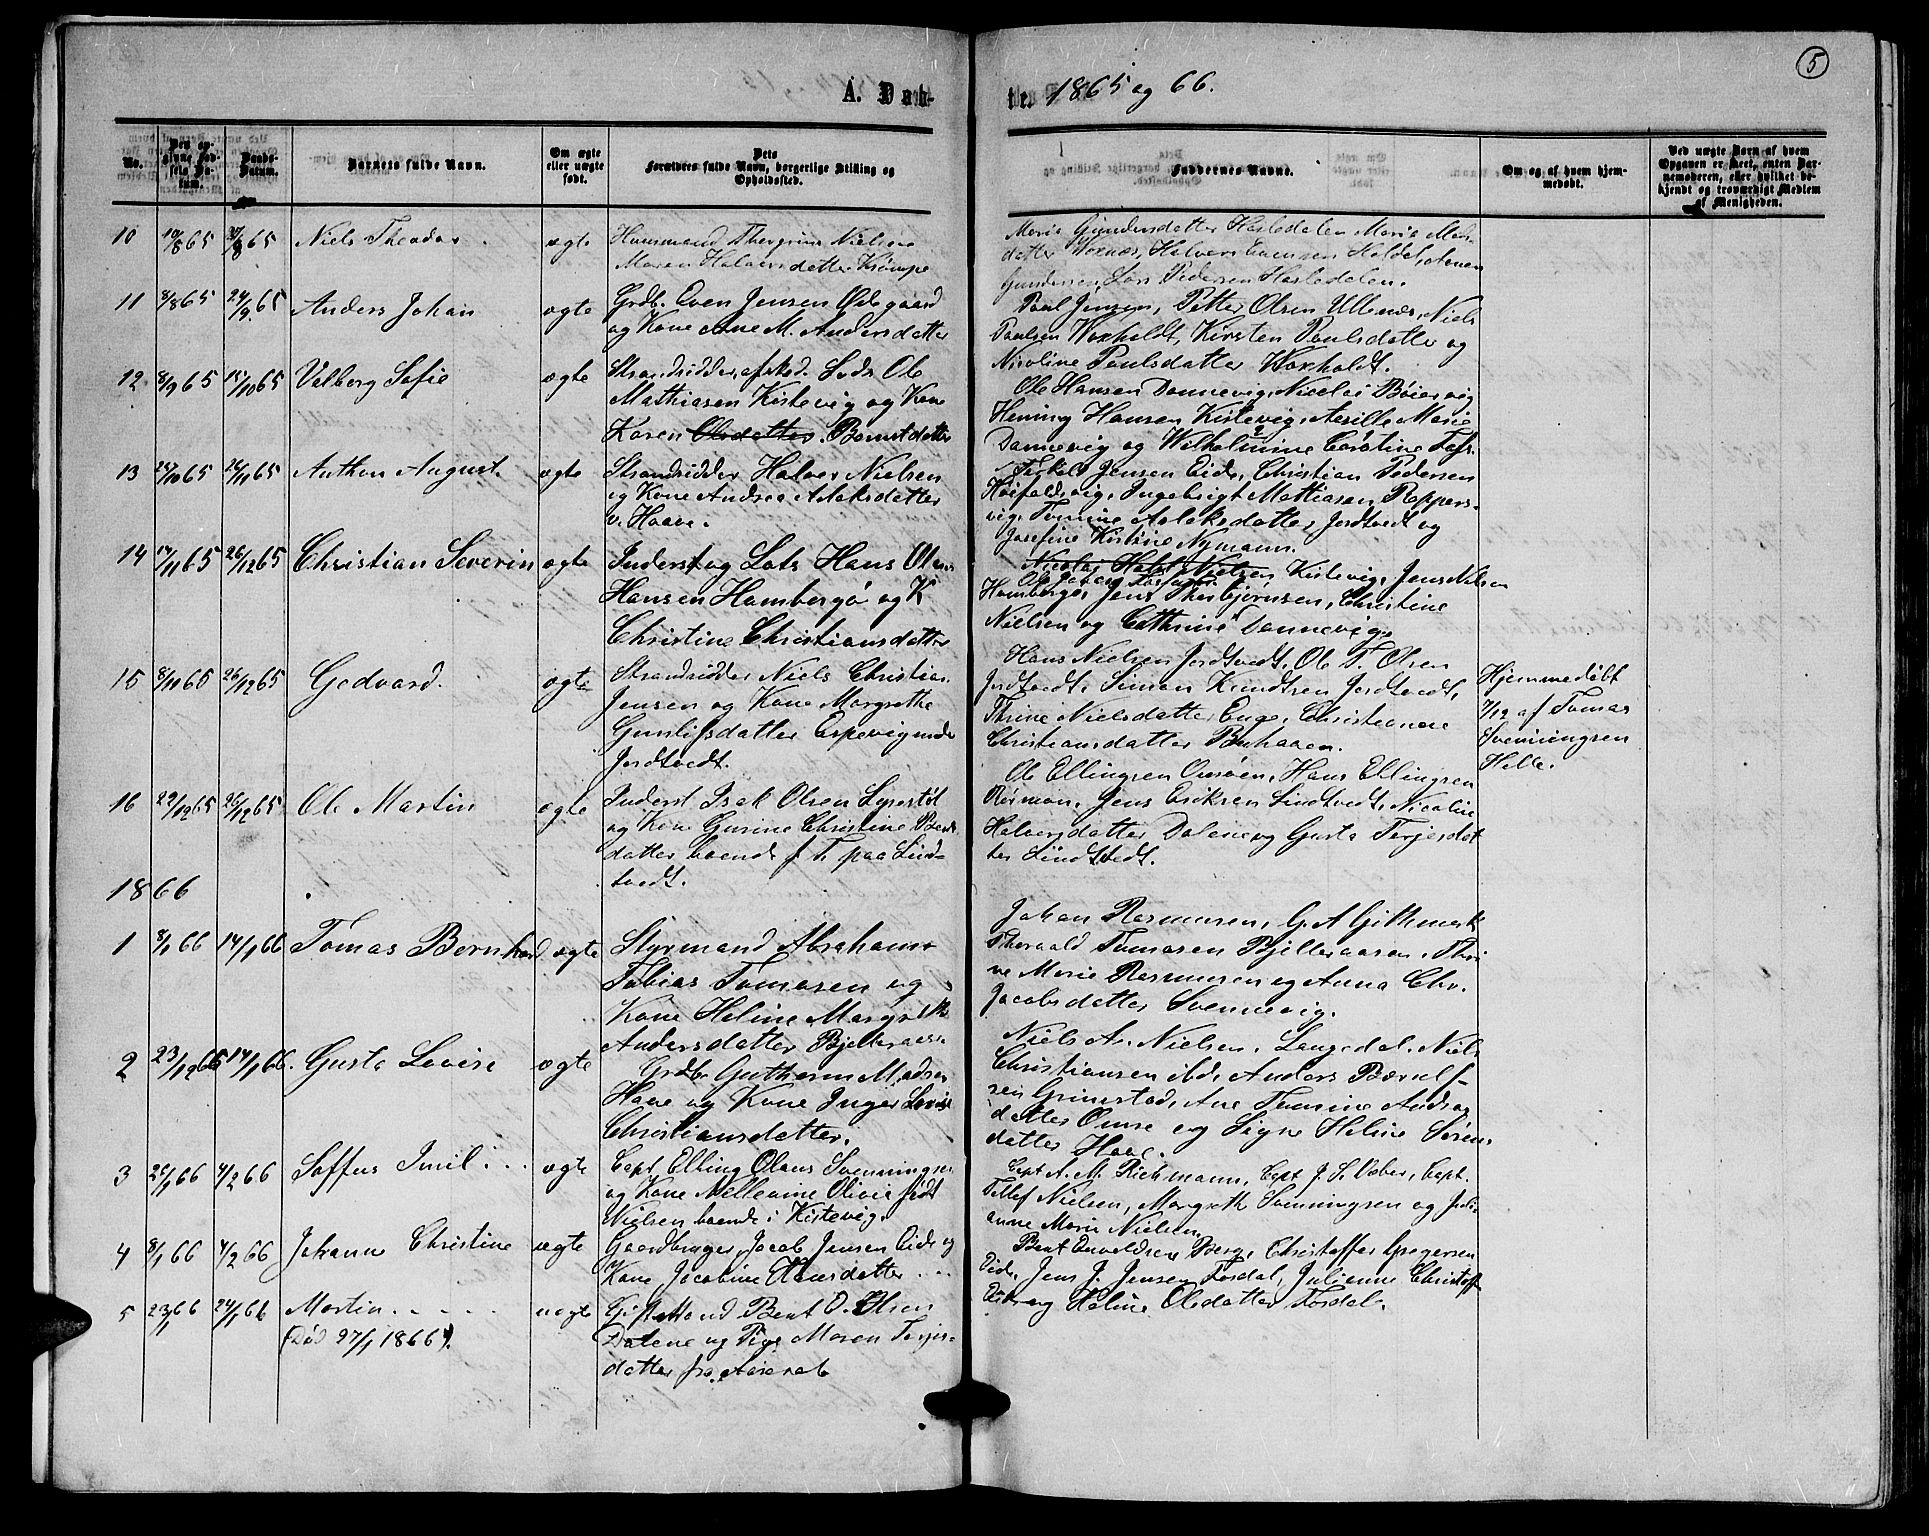 5
A. Døb-
te. 1865 og 66.
No.
Den op-
givne Fød-
sels Da-
tum.
Daabs-
Datum.
Barnets fulde Navn.
Om ægte
eller uægte
født.
Dets
Forældres fulde Navn, borgerlige Stilling og
Opholdssted.
Faddernes Navne.
Om og af hvem hjem-
medøbt.
Ved uægte Barn af hvem
Opgaven er skeet, enten Bar-
nemoderen, eller hvilket be-
kjendt og troværdigt Medlem
af Menigheden.
10 10/8 65 Niels Theodor ægte Huusmand Thorgrim Nielsen
Maren Halvorsdatter Krømpe
Maria Gundersdatter Hesledalen Maria
datter Woxnæs, Halvor Evensen Holdt,
Gundersen, Lars Pedersen Hesledalen.
11 8/8 65 24/9 65 Anders Johan ægte Grdb. Even Jensen Ødegaard
og Kone Ane M. Andersdatter
Paul Jensen, Petter Olsen Ullenæs, Niels
Paulsen Woxholdt, Kirsten Paulsdatter og
Nicoline Paulsdatter Woxholdt.
12 8/9 65 15/10 65 Valberg Sofie ægte Strandsidder, afsked. Lods Ole
Mathiasen Kistevig og Kone
Karen Olsdatter Berntdatter
Ole Hansen Dannevig, Nicolai Bøiesvig
Hening Hansen Kistevig, Aasille Marie
Dannevig og Wilhelmine Caroline
13 24/10 65 26/11 65 Anthon August ægte Strandsidder Halvor Nielsen
og Kone Andrea Aslaksdatter
v. Haave.
Terkel Jensen Eide, Christian Pedersen
Høifaldsvig, Ingebrigt Mathiasen Roppers-
vig, Tomine Aslaksdatter Jortveit og
Josefine Kistine Nymann.
14 17/11 65 26/12 65 Christian Severin ægte Inderst og Lots Hans Olaus
Hansen Hambergø og K
Christine Christiansdatter
Nicolai Holst Nielsen Kistevig, Jens Nielsen
Hambergø, Jens Thorbjørnsen, Christine
Nielsen og Cathrine Dannevig.
15 8/10 65 26/12 65 Gedvard. ægte Strandsidder Niels Christian
Jensen og Kone Margrethe
Gunlefsdatter Espevig under
Jordtvedt.
Hans Nielsen Jordtvedt, Ole T. Olsen
Jordtvedt, Simon Knudtsen Jordtvedt,
Thrine Nielsdatter Enge, Christiane
Christiansdatter Buhaaen.
Hjemmedøbt
7/12 af Tomas
Svenningsen
Helle.
16 22/10 65 26/12 65 Ole Martin ægte Inderst Isak Olsen Lyrestøl
og Kone Gurine Christine Bent
datter boende f. T. paa Lind-
tvedt.
Ole Ellingsen Omsøen, Hans Ellingsen
Rørmon, Jens Eriksen Lindtvedt, Nicoline
Halvorsdatter Dalene og Gusta Terjesdat
ter Lindtvedt.
1866
1 8/1 66 14/1 66 Tomas Bernhard ægte Styrmand Abraham
Tobias Tomasen og
Kone Heline Margrethe
Andersdatter Bjelleraasen
Johan Rasmusen, G. A. Githmark
Thorvald Tomasen Bjelleraasen, Thri
ne Marie Rasmusen og Anna Chr.
Jacobsdatter Svennevig.
2 23/12 65 14/1 66. Gusta Lovise ægte Grdbr Guthorm Madsen
Haae og Kone Inger Lovise
Christiansdatter.
Niels A. Nielsen, Langedal, Niels
Christiansen ibd, Anders Bærulf-
sen Grimstad, Ane Tomine Andreas
datter Omre og Signe Heline Søren
datter Haae.
3 26/1 66 4/2 66 Soffus Imil ægte Capt. Elling Olaus Svenningsen
og Kone Mellevine Olivie født
Nielsen boende i Kistevig.
Capt A. M. Richmann, Capt J. S. Weber, Capt.
Detlef Nielsen, Margreth Svenningsen og Juli
anne Marie Nielsen.
4 8/1 66 4/2 66 Johanne Christine ægte Gaardbruger, Jacob Jensen Eide og
Kone Jacobine Hansdatter
Bent Envoldsen Berge, Christoffer Gregersen
Eide, Jens J. Jensen Fosdal, Julianne Christoff
Eide og Heline Olsdatter Fosdal.
5 23/1 66 24/1 66 Martin
(Død 27/1 1866). uægte Gift Mand Bent O. Olsen
Dalene og Pige Maren Terjes-
datter fra Aaserab